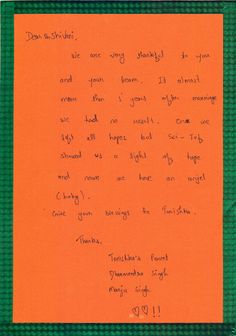 Dear Dr Shivani,
We are very thankful to you
and your team. It almost
more than 5 years after marriage
we had no result. Once we
left all hopes but Sci-
showed us a light of hope
and now we have an angel
(baby).
Give your blessings to Tanishka.
Thanks,
Tanishka's Parent
Dharmendra Singh
Manju Singh
!!